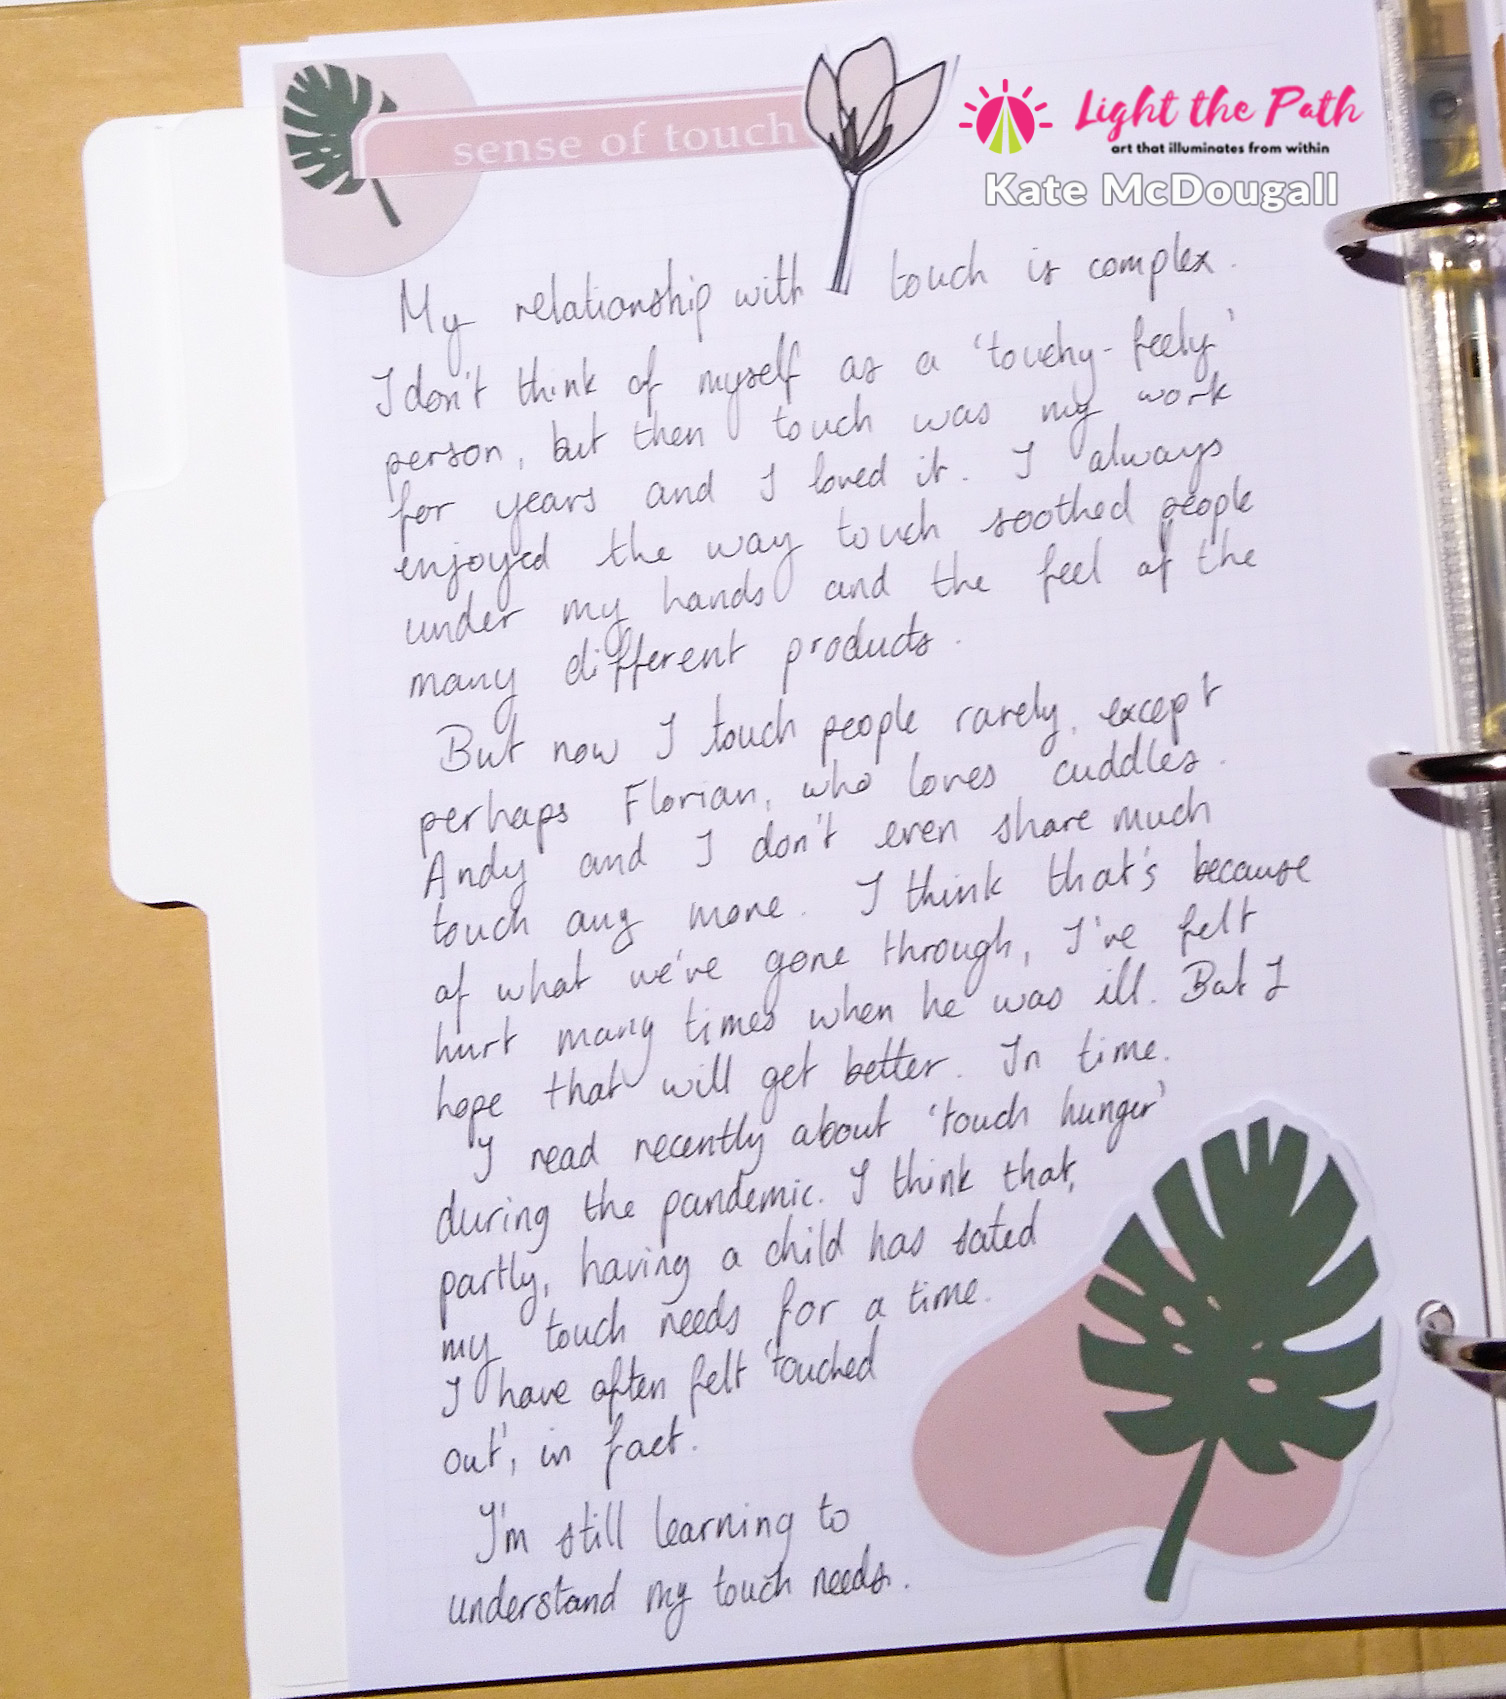 sense of touch
Light the Path
art that illuminates from within
Kate McDougall
My relationship with touch is complex.
I don't think of myself as a 'touchy-feely'
person, but then touch was my work
for years and I loved it. I always
enjoyed the way touch soothed people
under my hands and the feel of the
many different products.
But now I touch people rarely, except
perhaps Florian, who loves cuddles.
Andy and I don't even share much
touch any more. I think that's because
of what we've gone through, I've felt
hurt many times when he was ill. But I
hope that will get better. In time.
I read recently about 'touch hunger'
during the pandemic. I think that,
partly, having a child has sated
my touch needs for a time.
I have often felt 'touched
out', in fact.
I'm still learning to
understand my touch needs.